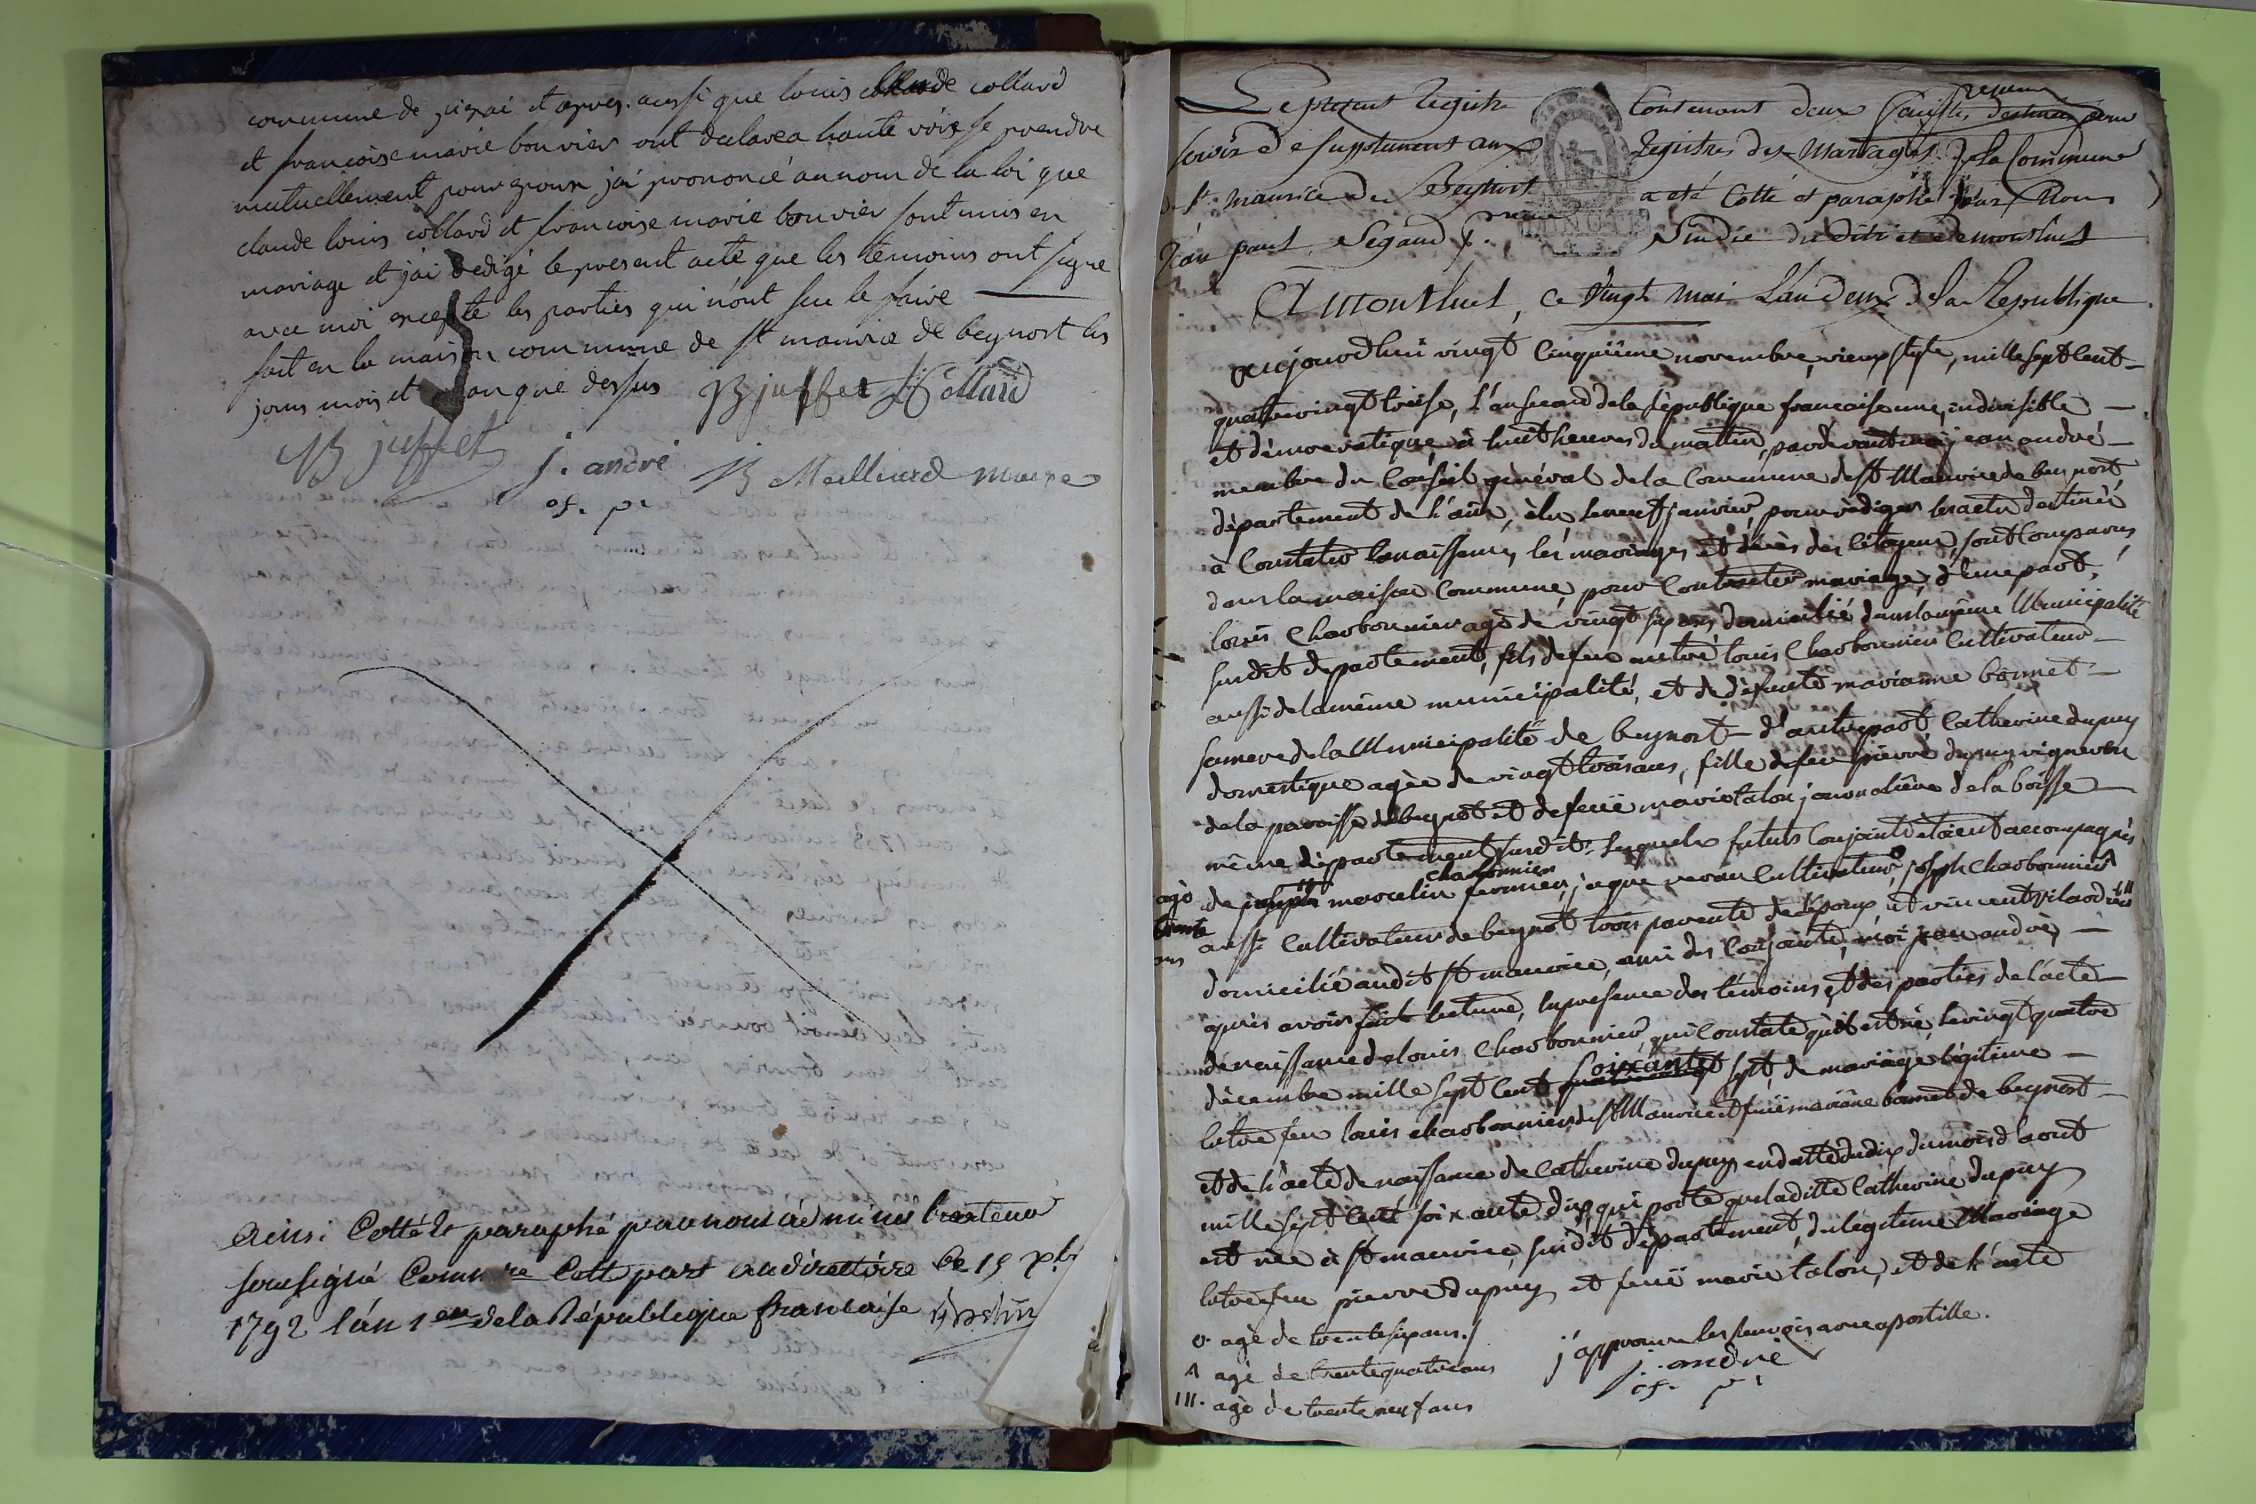 commune de jizai et apres. aussi que louis claude collard
et francoise marie bouvier ont declarea haute voix se prendre
mutuellement pour epoux jai prononcé au nom de la loi que
claude louis collard et francoise marie bouvier sont unis en
mariage et j'ai redigé le present acte que les temoins ont signe
avec moi excepte les parties qui n'ont scu le faire
fait en la maison commune de st maurice de beynost les
jours mois et an que dessus JB juffet Collard
JB juffet j. andré JB Meilliard maire
of. p.
Ainsi Cotté et paraphé par nous
soussigné au directoire Ce 15 Xbre
1792 l'an 1er de la République francaise
Le present Registre Contenant deux feuillets destinés pour
servir de supplement aux Registres des Mariages de la Commune
de St. maurice de Beynost a eté Cotté et paraphé par Nous
Segaud Sindic du District de montluel
A montluel, ce Vingt mai L'an deux de la Republique
aujourdhui vingt Cinquiéme novembre, vieux style, mille sept cent
quatrevingt treise, l'an second de la republique francaise une, indivisible
et démocratique, à huit heures du mattin, pardevant moi jean andré
membre du Conseil général de la Commune de St Maurice de beynost,
département de l'ain, élu, le neuf janvier, pour rédiger les actes destinés
à Constater les naissances, les mariages et décès des Citoyens, sont Comparus
dans la maison Commune, pour Contracter mariage, d'une part,
louis Charbonnier agé de vingt six ans domicilié dans la même Municipalité
susdit departement, fils de feu autre louis Charbonnier Cultivateur
aussi de la même municipalité, et de défunte marianne bonnet
sa mere de la Municipalité de beynost d'autre part Catherine dupuy
domestique agée de vingt trois ans, fille de feu pierre dupuy vigneron
de la paroisse de beynost et de feüe marie talon journaliere de la boisse
même département susdit. lesquels futurs Conjoints étoient accompagnés
charbonnier
agé de marcelin fermier, jaque Cultivateur, joseph Charbonnier
trente aussi Cultivateur de beynost trois parents de l'époux, et vincent
ans domicilié audit st maurice, ami des Conjoints, moi jean andré,
après avoir fait lecture, en presence des témoins et des parties de l'acte
de naissance de louis Charbonnier, qui Constate qu'il est né, le vingt quatre
décembre mille sept cent soixante sept, de mariage légitime
entre feu louis charbonnier de st Maurice et feüe marianne bonnet de beynost
et de l'acte de naissance de Catherine dupuy en datte du dix du mois d'aout
mille sept cent soixante dix, qui porte que laditte Catherine dupuy
est née à st maurice, susdit département, du légitime Mariage
entre feu pierre dupuy et feüe marie talon, et de l'acte
o. agé de trente six ans. j'approuve les renvois avec apostille.
agé de trente quatre ans j. andré
III. agé de trente neuf ans of. p.